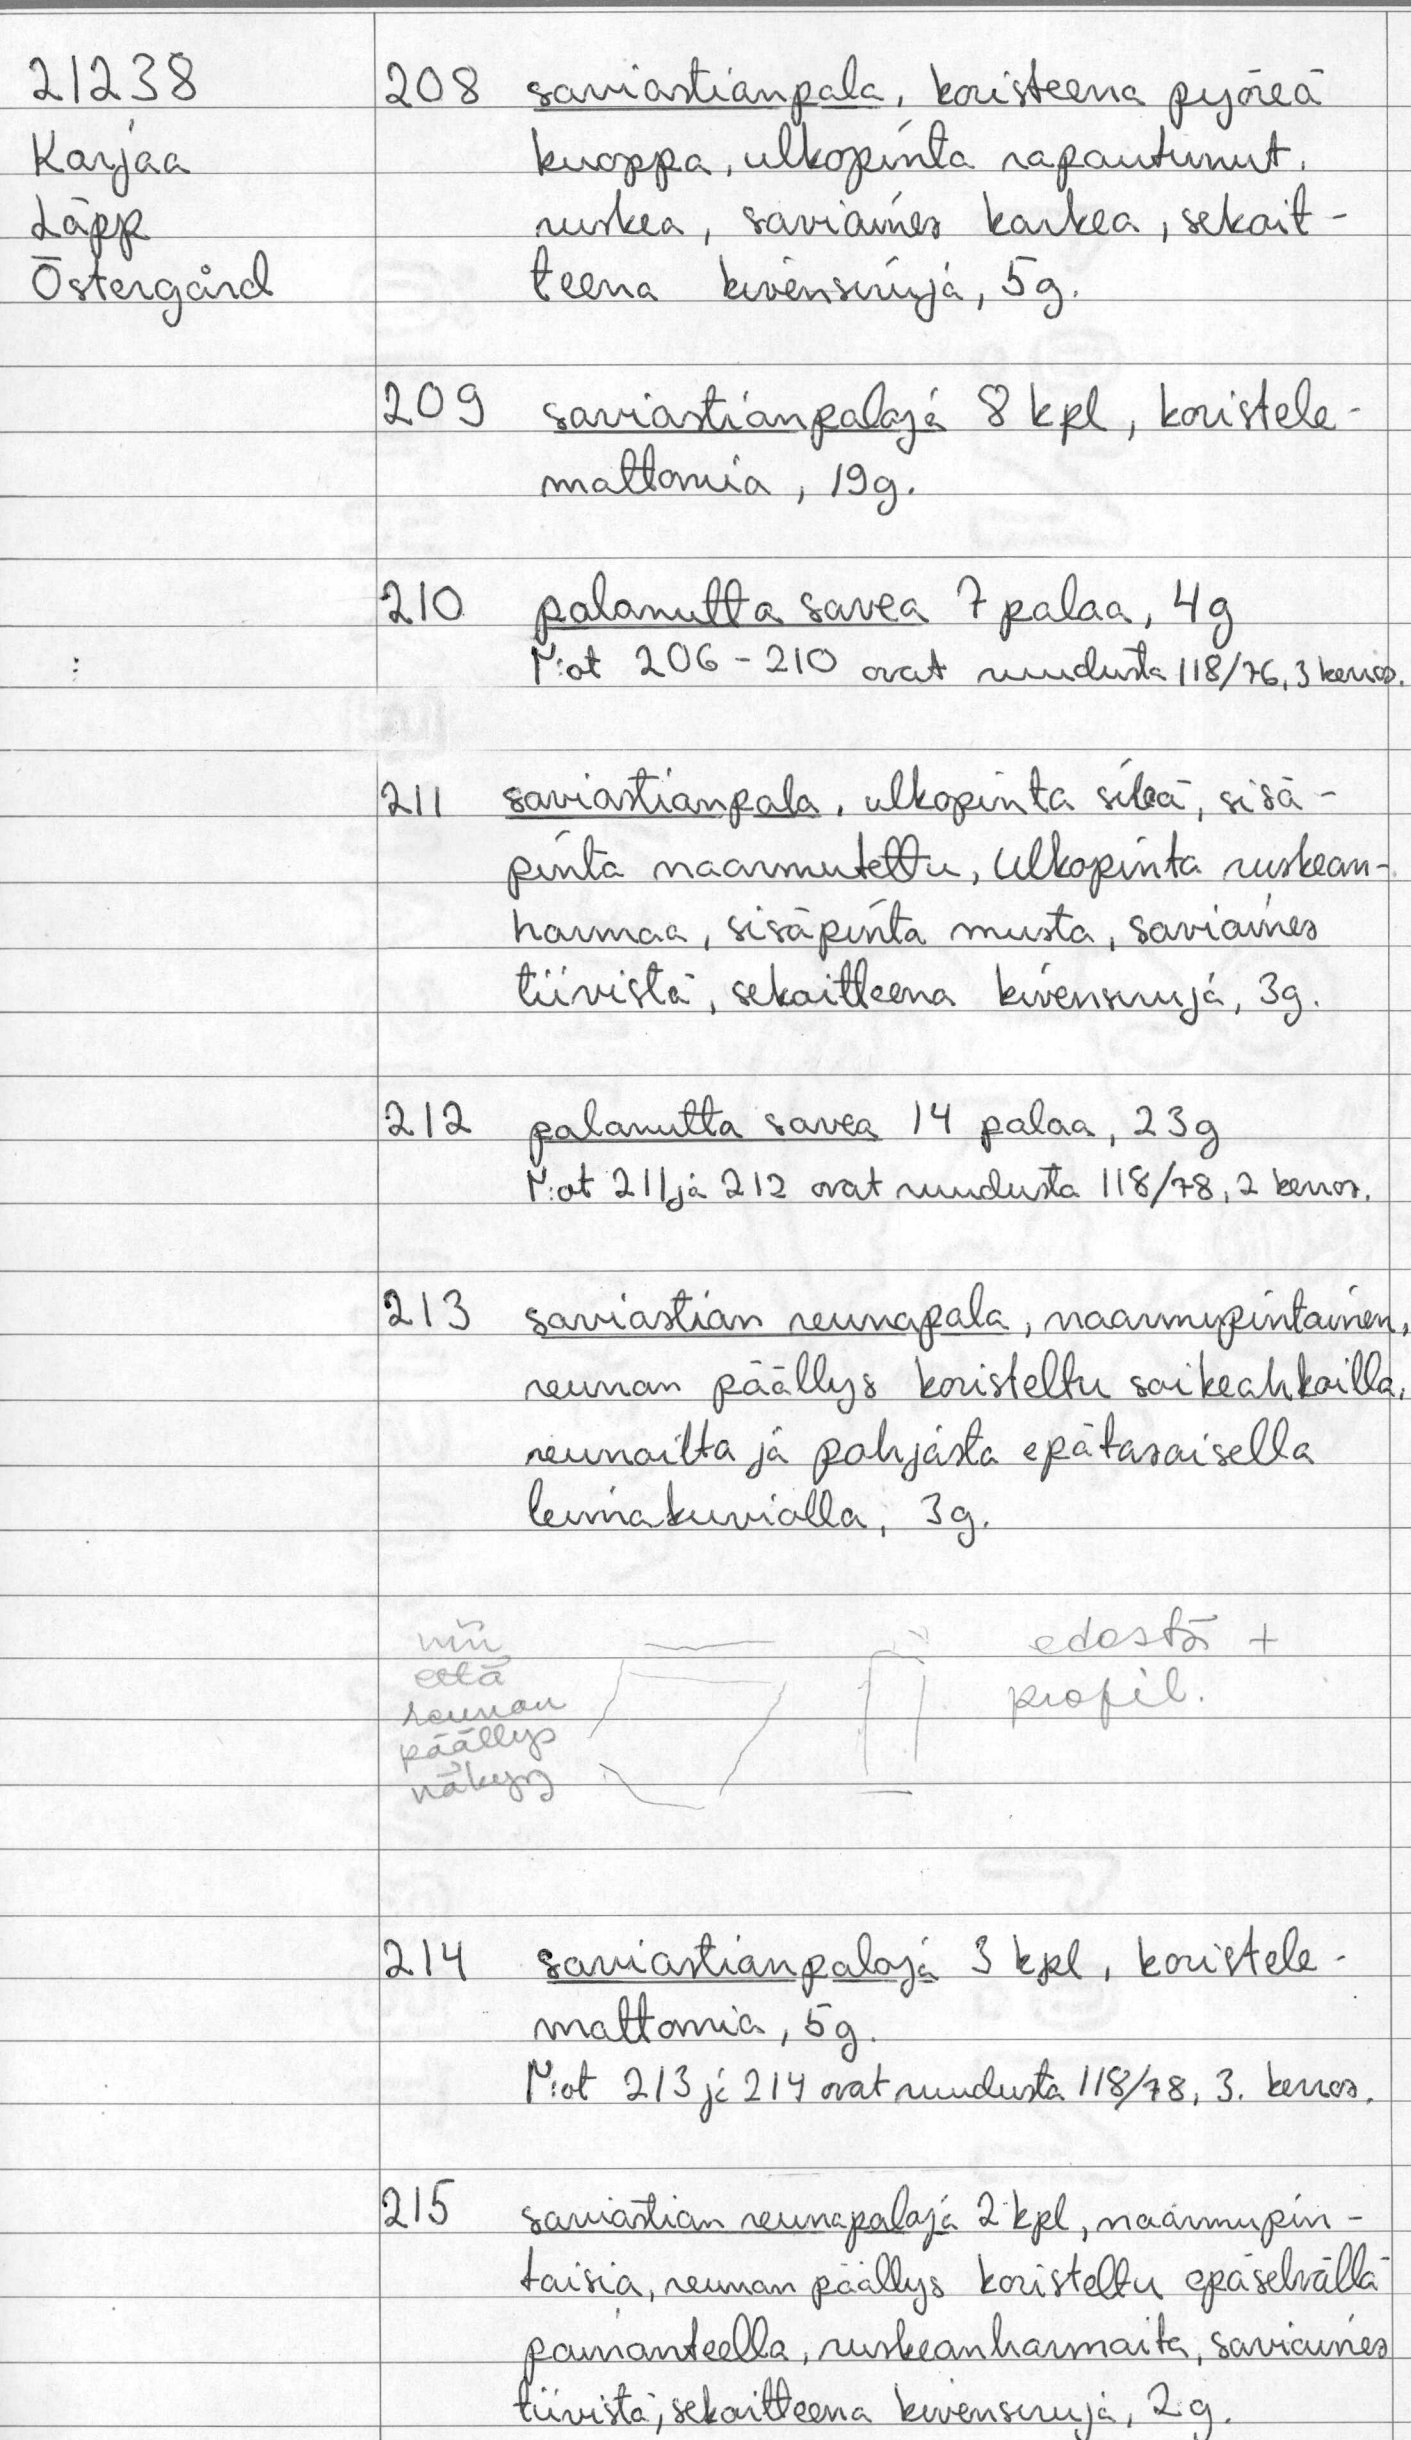 21238
Karjaa
Läpp
Östergård
208 saviastianpala, koristeena pyöreä
kuoppa, ulkopinta rapautunut.
ruskea, saviaines karkea, sekoit-
teena kivensiruja, 5g.
209 saviastianpaloja 8 kpl, koristele-
mattomia, 19g.
210 palanutta savea 7 palaa, 4g
N:ot 206-210 ovat ruudusta 118/76, 3 kerros.
211 saviastianpala, ulkopinta sileä, sisä-
pinta naarmutettu, Ulkopinta ruskean-
harmaa, sisäpinta musta, saviaines
tiivistä, sekoitteena kivensiruja, 3g.
212 palanutta savea 14 palaa, 23g
N:ot 211 ja 212 ovat ruudusta 118/78, 2 kerros.
213 saviastian reunapala, naarmupintainen,
reunan päällys koristeltu soikeahkoilla,
reunoilta ja pohjasta epätasaisella
leimakuviolla, 3g.
niin
että
reunan
päällys
näkyy
edestä +
profil.
214 saviastianpaloja 3 kpl, koristele-
mattomia, 5g.
N:ot 213 ja 214 ovat ruudusta 118/78, 3. kerros.
215 saviastian reunapaloja 2 kpl, naarmupin-
taisia, reunan päällys koristeltu epäselvällä
painanteella, ruskeanharmaita, saviaines
tiivistä, sekoitteena kivensiruja, 2g.